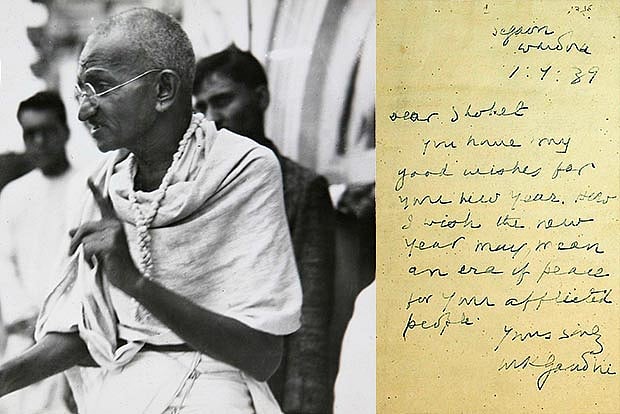 Segaon
Wardha
1.9.39
Dear Shohet
You have my
good wishes for
your new year. How
I wish the new
year may mean
an era of peace
for your afflicted
people.
Yours sincly
MKGandhi